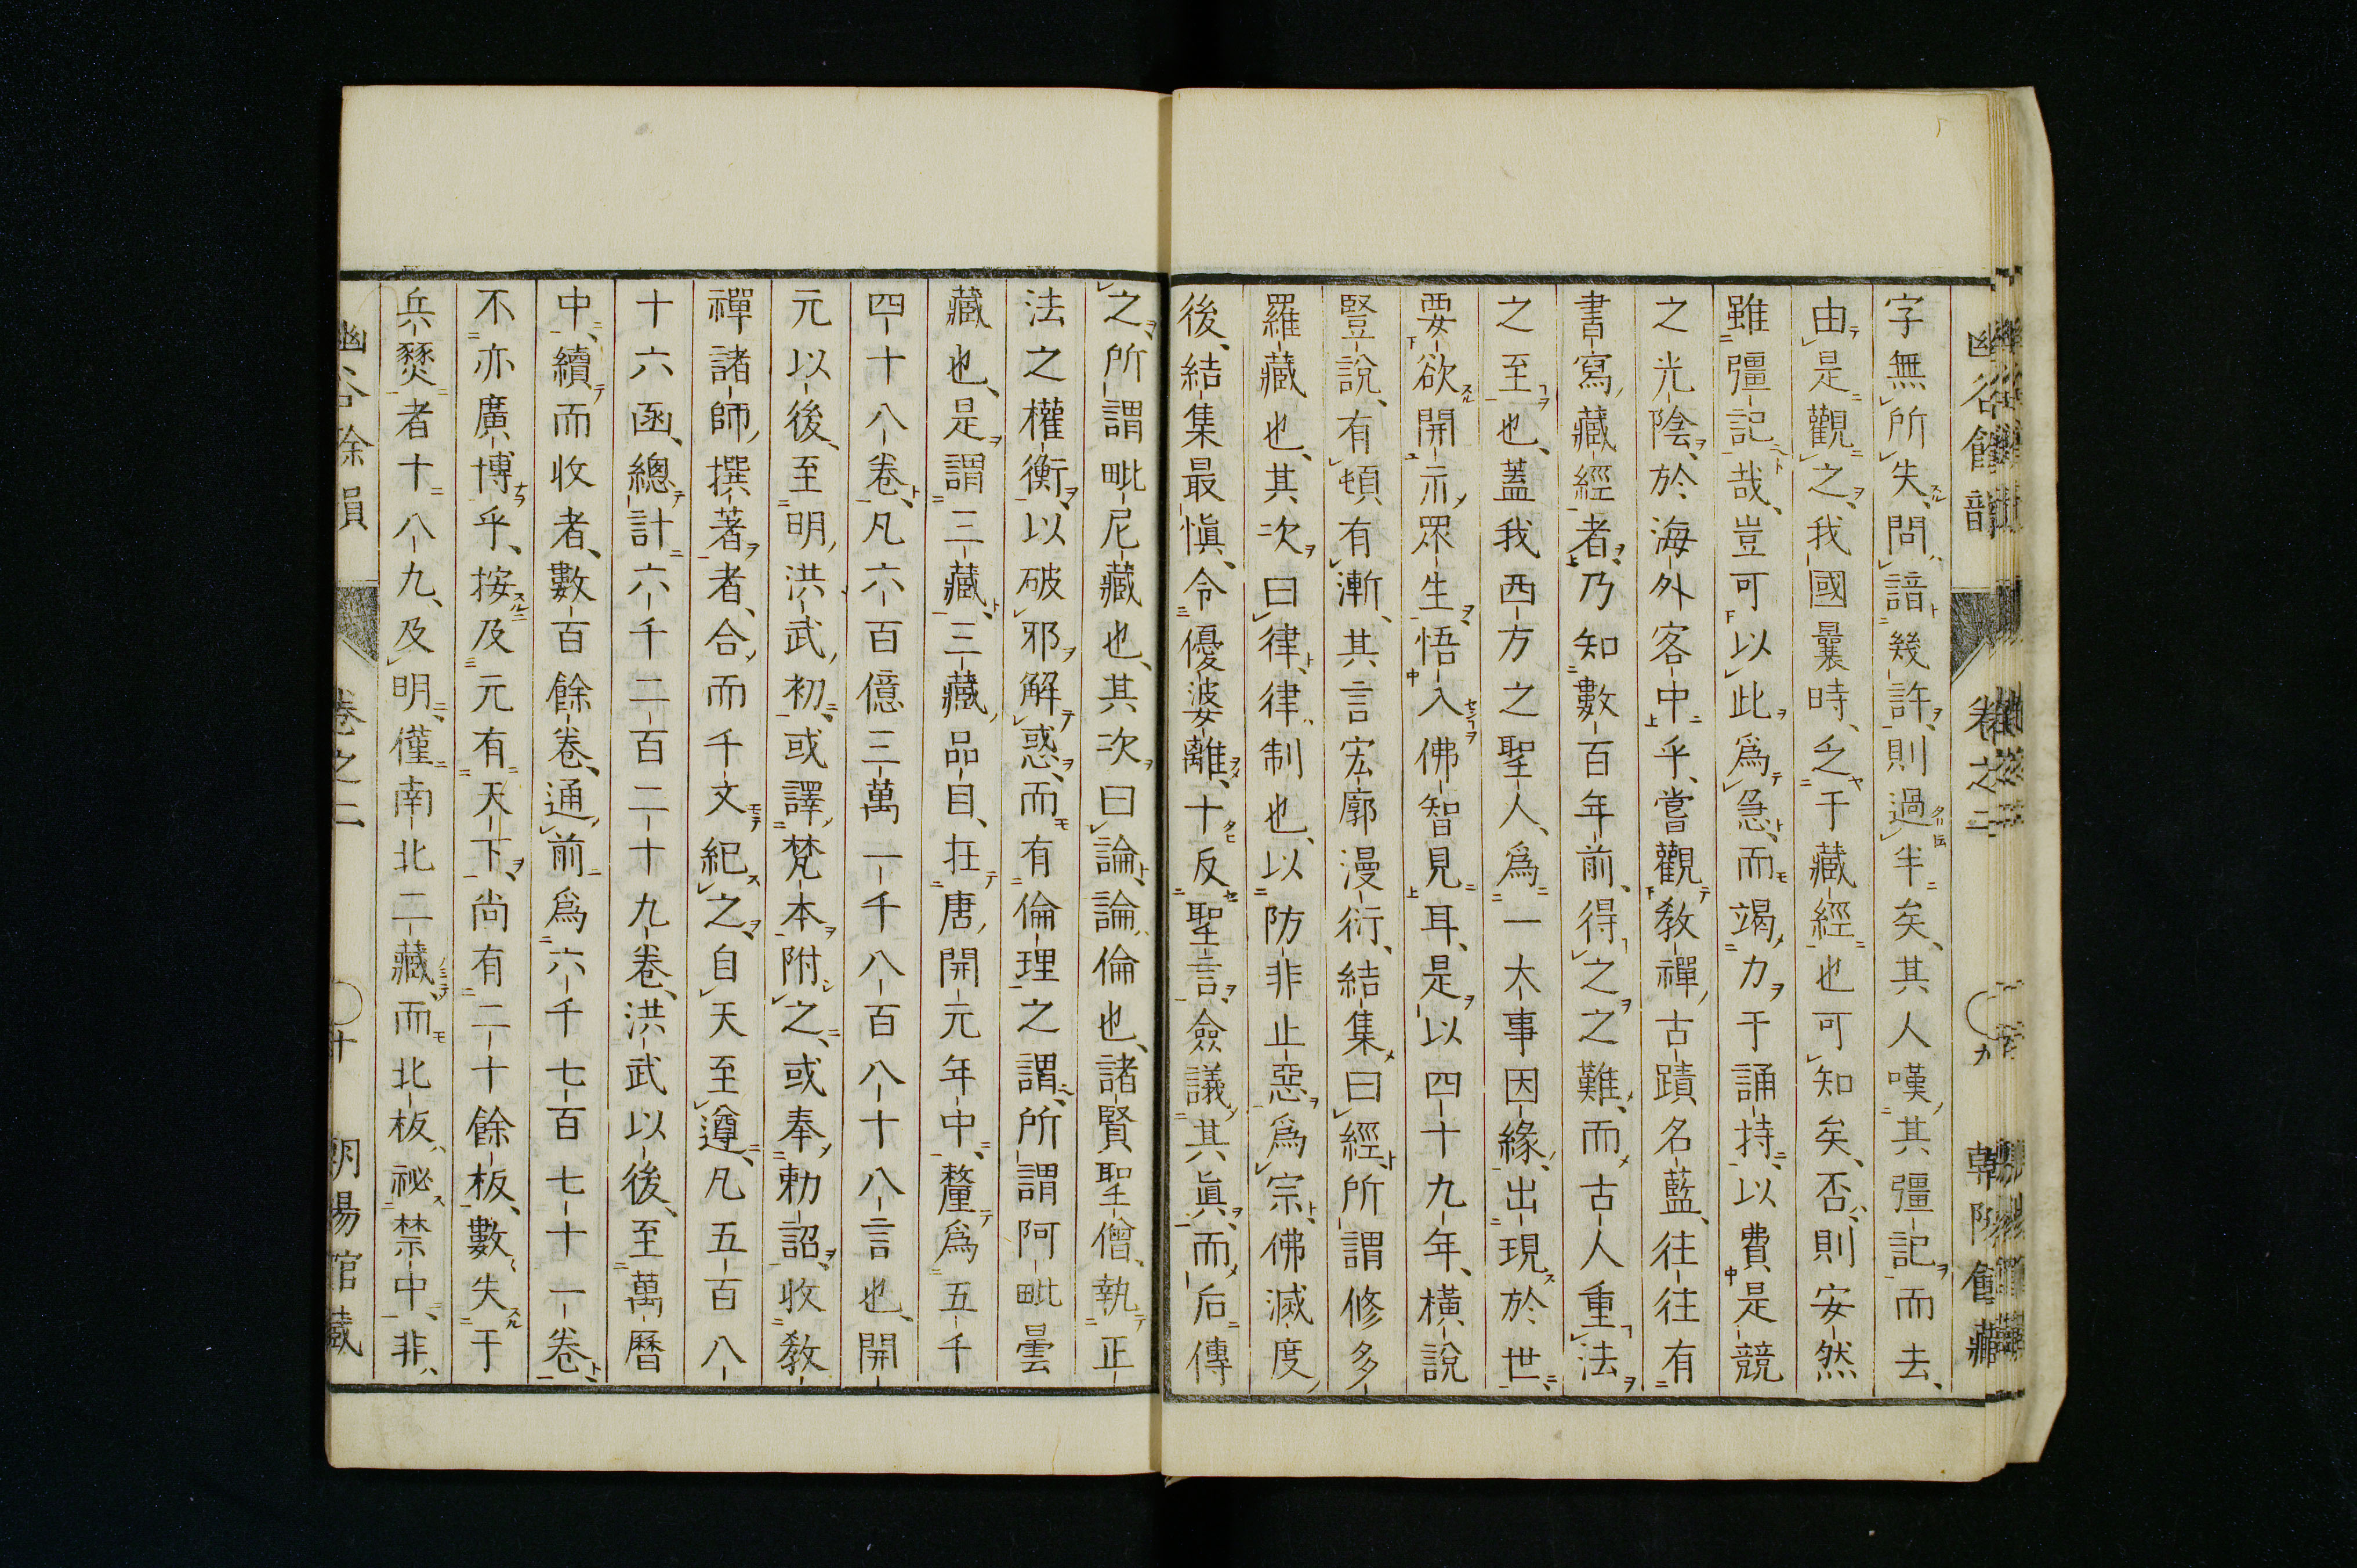 幽谷餘韻 卷之二 〇九 朝陽館藏
字無所失問諳幾許則過半矣其人嘆其彊記而去
由是觀之我國曩時乏于藏經也可知矣否則安然
雖彊記哉豈可以此爲急而竭力于誦持以費是競
之光陰於海外客中乎嘗觀教禪古蹟名藍往往有
書寫藏經者乃知數百年前得之之難而古人重法
之至也蓋我西方之聖人爲一大事因緣出現於世
要欲開示眾生悟入佛智見耳是以四十九年橫說
豎說有頓有漸其言宏廓漫衍結集曰經所謂修多
羅藏也其次曰律律制也以防非止惡爲宗佛滅度
後結集最愼令優婆離十反聖言僉議其眞而后傳
之所謂毗尼藏也其次曰論論倫也諸賢聖僧執正
法之權衡以破邪解惑而有倫理之謂所謂阿毗曇
藏也是謂三藏三藏品目在唐開元年中釐爲五千
四十八卷凡六百億三萬一千八百八十八言也開
元以後至明洪武初或譯梵本附之或奉勅詔收教
禪諸師撰著者合而千文紀之自天至遵凡五百八
十六函總計六千二百二十九卷洪武以後至萬曆
中續而收者數百餘卷通前爲六千七百七十一卷
不亦廣博乎按及元有天下尚有二十餘板數失于
兵燹者十八九及明僅南北二藏而北板祕禁中非
幽谷餘韻 卷之二 〇十 朝陽館藏